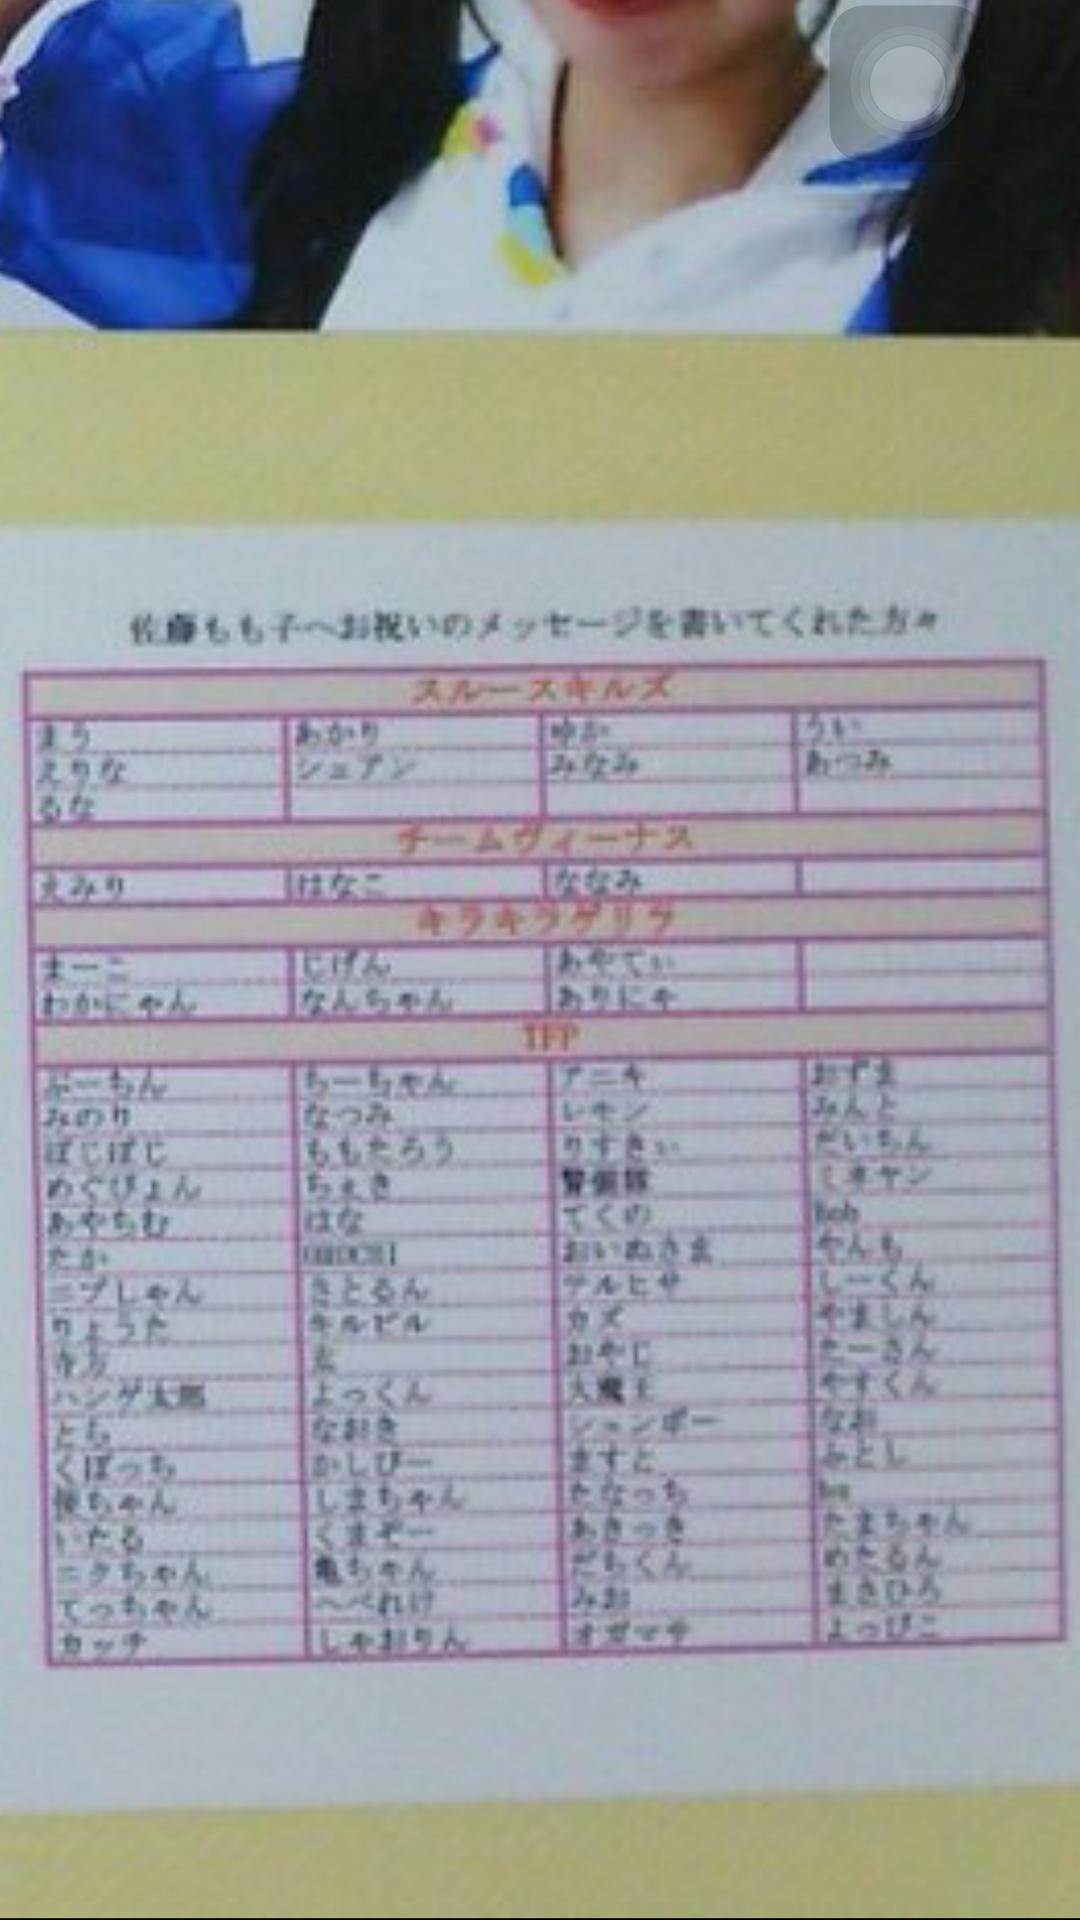 佐藤もも子へお祝いのメッセージを書いてくれた方々
スルースキルズ
まう あかり ゆか うい
えりな シェアン みなみ あつみ
るな
チームヴィーナス
えみり はなこ ななみ
キラキラゲリラ
まーこ じげん あやてぃ
わかにゃん なんちゃん ありにゃ
TFP
ぶーちん ちーちゃん アニキ おずま
みのり なつみ レモン みんと
ぽじぽじ ももたろう りすきぃ だいちん
めぐぴょん ちぇき 警備隊 ミネヤン
あやちむ はな てくの Bob
たか OROCHI おいぬさま やんも
ニブしゃん さとるん テルヒサ しーくん
りょうた キルビル カズ やましん
寺方 おやじ たーさん
ハンゲ太郎 よっくん 大魔王 やすくん
とら なおき ションボー なお
くぼっち かしぴー ますと ふとし
しまちゃん たなっち
いたる くまぞー あきっき たまちゃん
ニクちゃん 亀ちゃん だちくん めたるん
てっちゃん へべれけ みお まさひろ
カッチ しゃおりん オガマサ よっぴこ